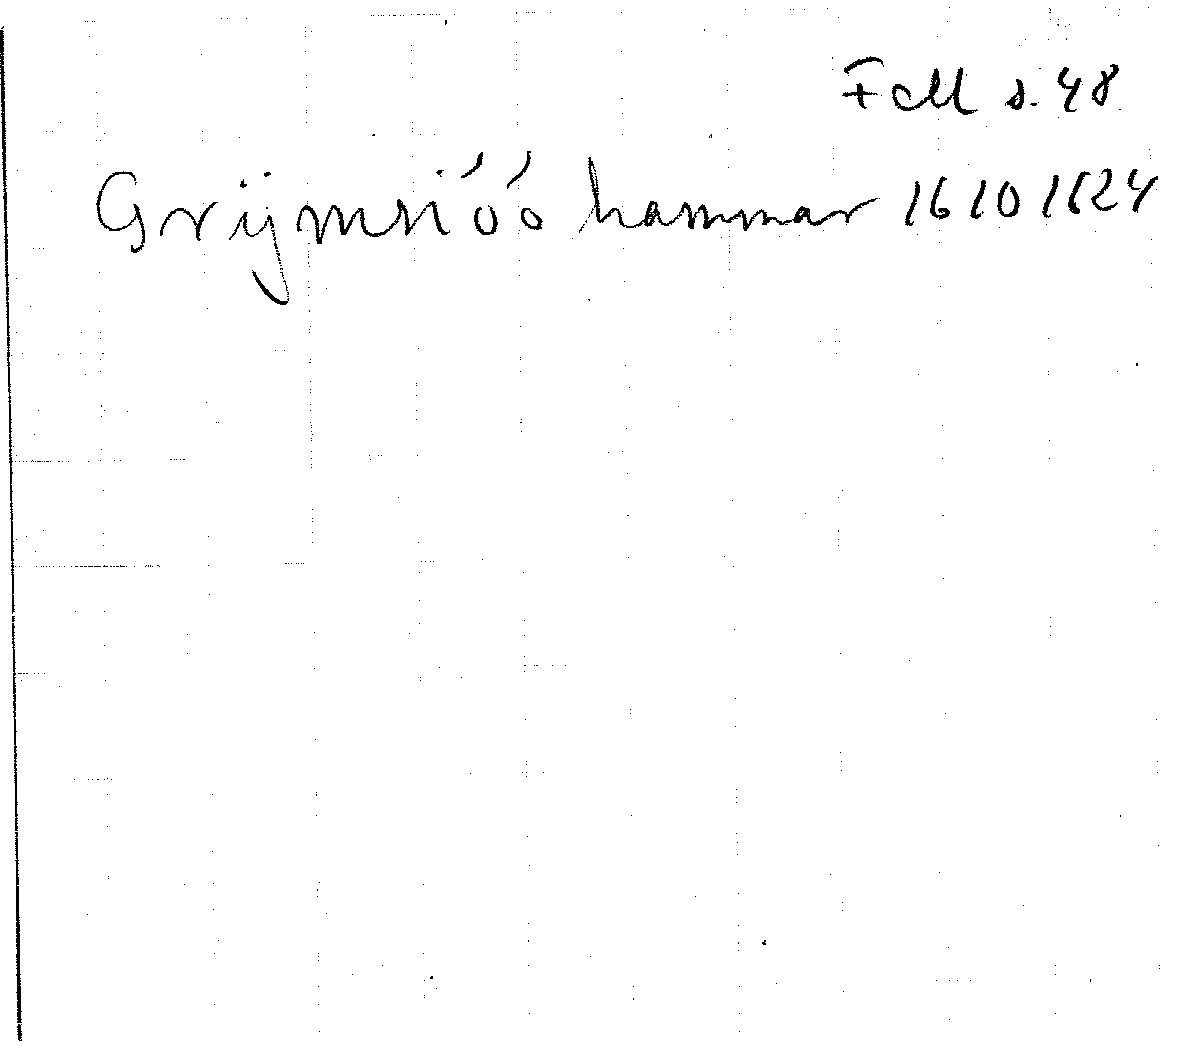 FcM s. 48
Grijmsióó hammar 1610 1624